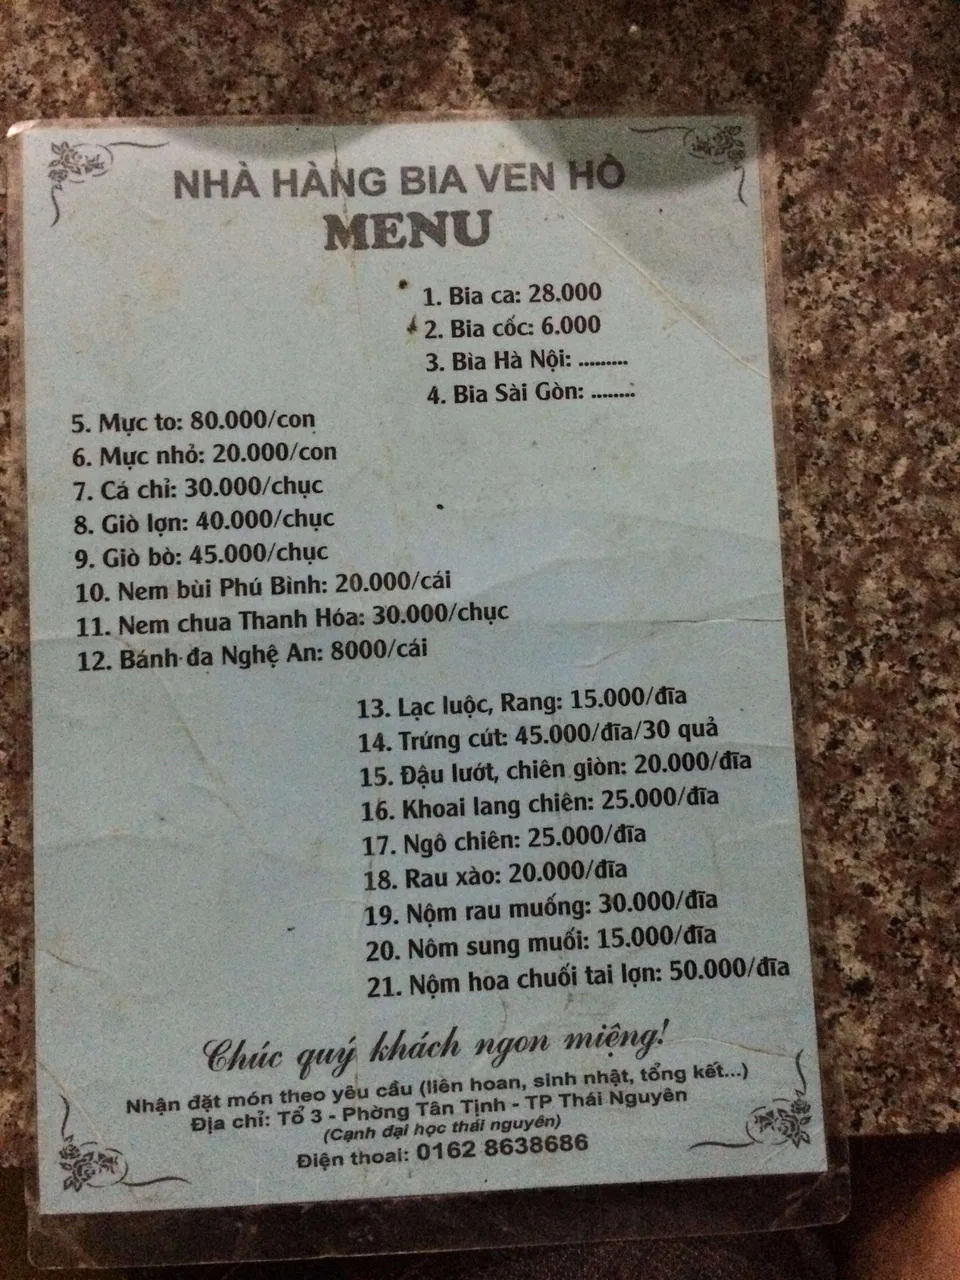 NHÀ HÀNG BIA VEN HỒ
MENU
1. Bia ca: 28.000
2. Bia cốc: 6.000
3. Bia Hà Nội: .........
4. Bia Sài Gòn: ........
5. Mực to: 80.000/con
6. Mực nhỏ: 20.000/con
7. Cá chỉ: 30.000/chục
8. Giò lợn: 40.000/chục
9. Giò bò: 45.000/chục
10. Nem bùi Phú Bình: 20.000/cái
11. Nem chua Thanh Hóa: 30.000/chục
12. Bánh đa Nghệ An: 8000/cái
13. Lạc luộc, Rang: 15.000/đĩa
14. Trứng cút: 45.000/đĩa/30 quả
15. Đậu lướt, chiên giòn: 20.000/đĩa
16. Khoai lang chiên: 25.000/đĩa
17. Ngô chiên: 25.000/đĩa
18. Rau xào: 20.000/đĩa
19. Nộm rau muống: 30.000/đĩa
20. Nôm sung muối: 15.000/đĩa
21. Nộm hoa chuối tai lợn: 50.000/đĩa
Chúc quý khách ngon miệng!
Nhận đặt món theo yêu cầu (liên hoan, sinh nhật, tổng kết...)
Địa chỉ: Tổ 3 - Phờng Tân Tịnh - TP Thái Nguyên
(Cạnh đại học thái nguyên)
Điện thoai: 0162 8638686